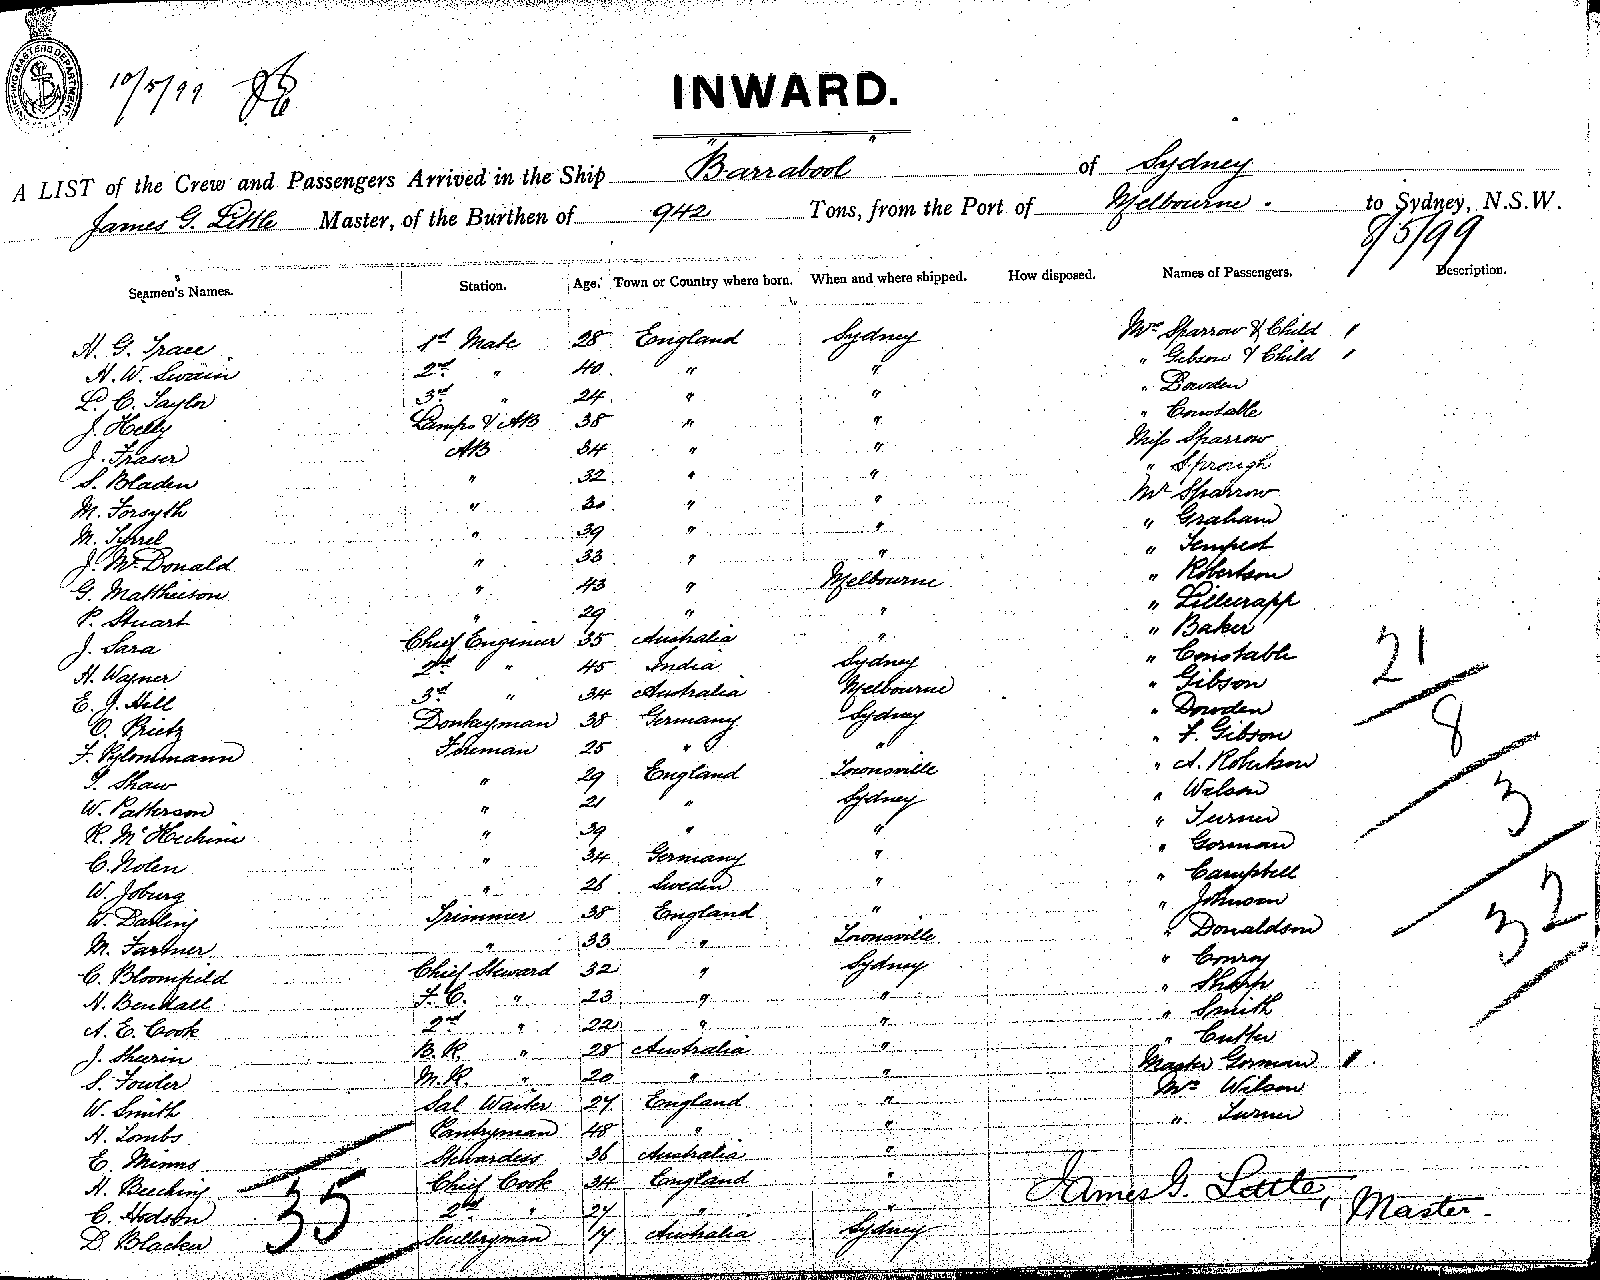 SHIPPING MASTERS DEPARTMENT
10/5/99
INWARD.
A LIST of the Crew and Passengers Arrived in the Ship Barrabool of Sydney
James G. Little Master, of the Burthen of 942 Tons, from the Port of Melbourne. to Sydney, N.S.W.
8/5/99
Seamen's Names. Station. Age. Town or Country where born. When and where shipped. How disposed. Names of Passengers. Description.
H. G. Trace 1st Mate 28 England Sydney Mrs Sparrow & Child
H. W. Swain 2nd " 40 " " " Gibson & Child
L. C. Taylor 3rd " 24 " " " Dowden
J. Helly Lamps & AB 38 " " " Constable
J. Fraser AB 34 " " Miss Sparrow
S. Bladen " 32 " " " Sprough
M. Forsyth " 30 " " Mr Sparrow
M. Tyrrel " 39 " " " Graham
J. McDonald " 33 " " " Tempest
G. Mathieson " 43 " Melbourne " Robertson
P. Stuart " 29 " " " Lillecrapp
J. Sara Chief Engineer 35 Australia " " Baker
H. Wagner 2nd " 45 India Sydney " Constable
E. J. Hill 3rd " 34 Australia Melbourne " Gibson
O. Prietz Donkeyman 38 Germany Sydney " Dowden
F. Fireman 25 " " " F. Gibson
T. Shaw " 29 England Townsville " A. Robertson
W. Patterson " 21 " Sydney " Wilson
R. " 39 " " " Turner
C. Nolen " 34 Germany " " Gorman
W. Joburg " 26 Sweden " " Campbell
W. Darling Trimmer 38 England " " Johnson
M. Farmer " 33 " Townsville " Donaldson
C. Bloomfield Chief Steward 32 " Sydney " Conroy
H. Bendall F.C. " 23 " " " Sharp
A. E. Cook 2nd " 22 " " " Smith
J. Sheerin B.R. " 28 Australia " " Cutter
S. Fowler M.R. " 20 " " Master Gorman
W. Smith Sal Waiter 27 England " Mrs Wilson
H. Tombs Pantryman 48 " " " Turner
E. Minns Stewardess 36 Australia "
H. Beeching Chief Cook 34 England "
C. Hodson 2nd " 27 " "
D. Blacker Sculleryman 17 Australia Sydney
35
21
8
3
32
James G. Little, Master.